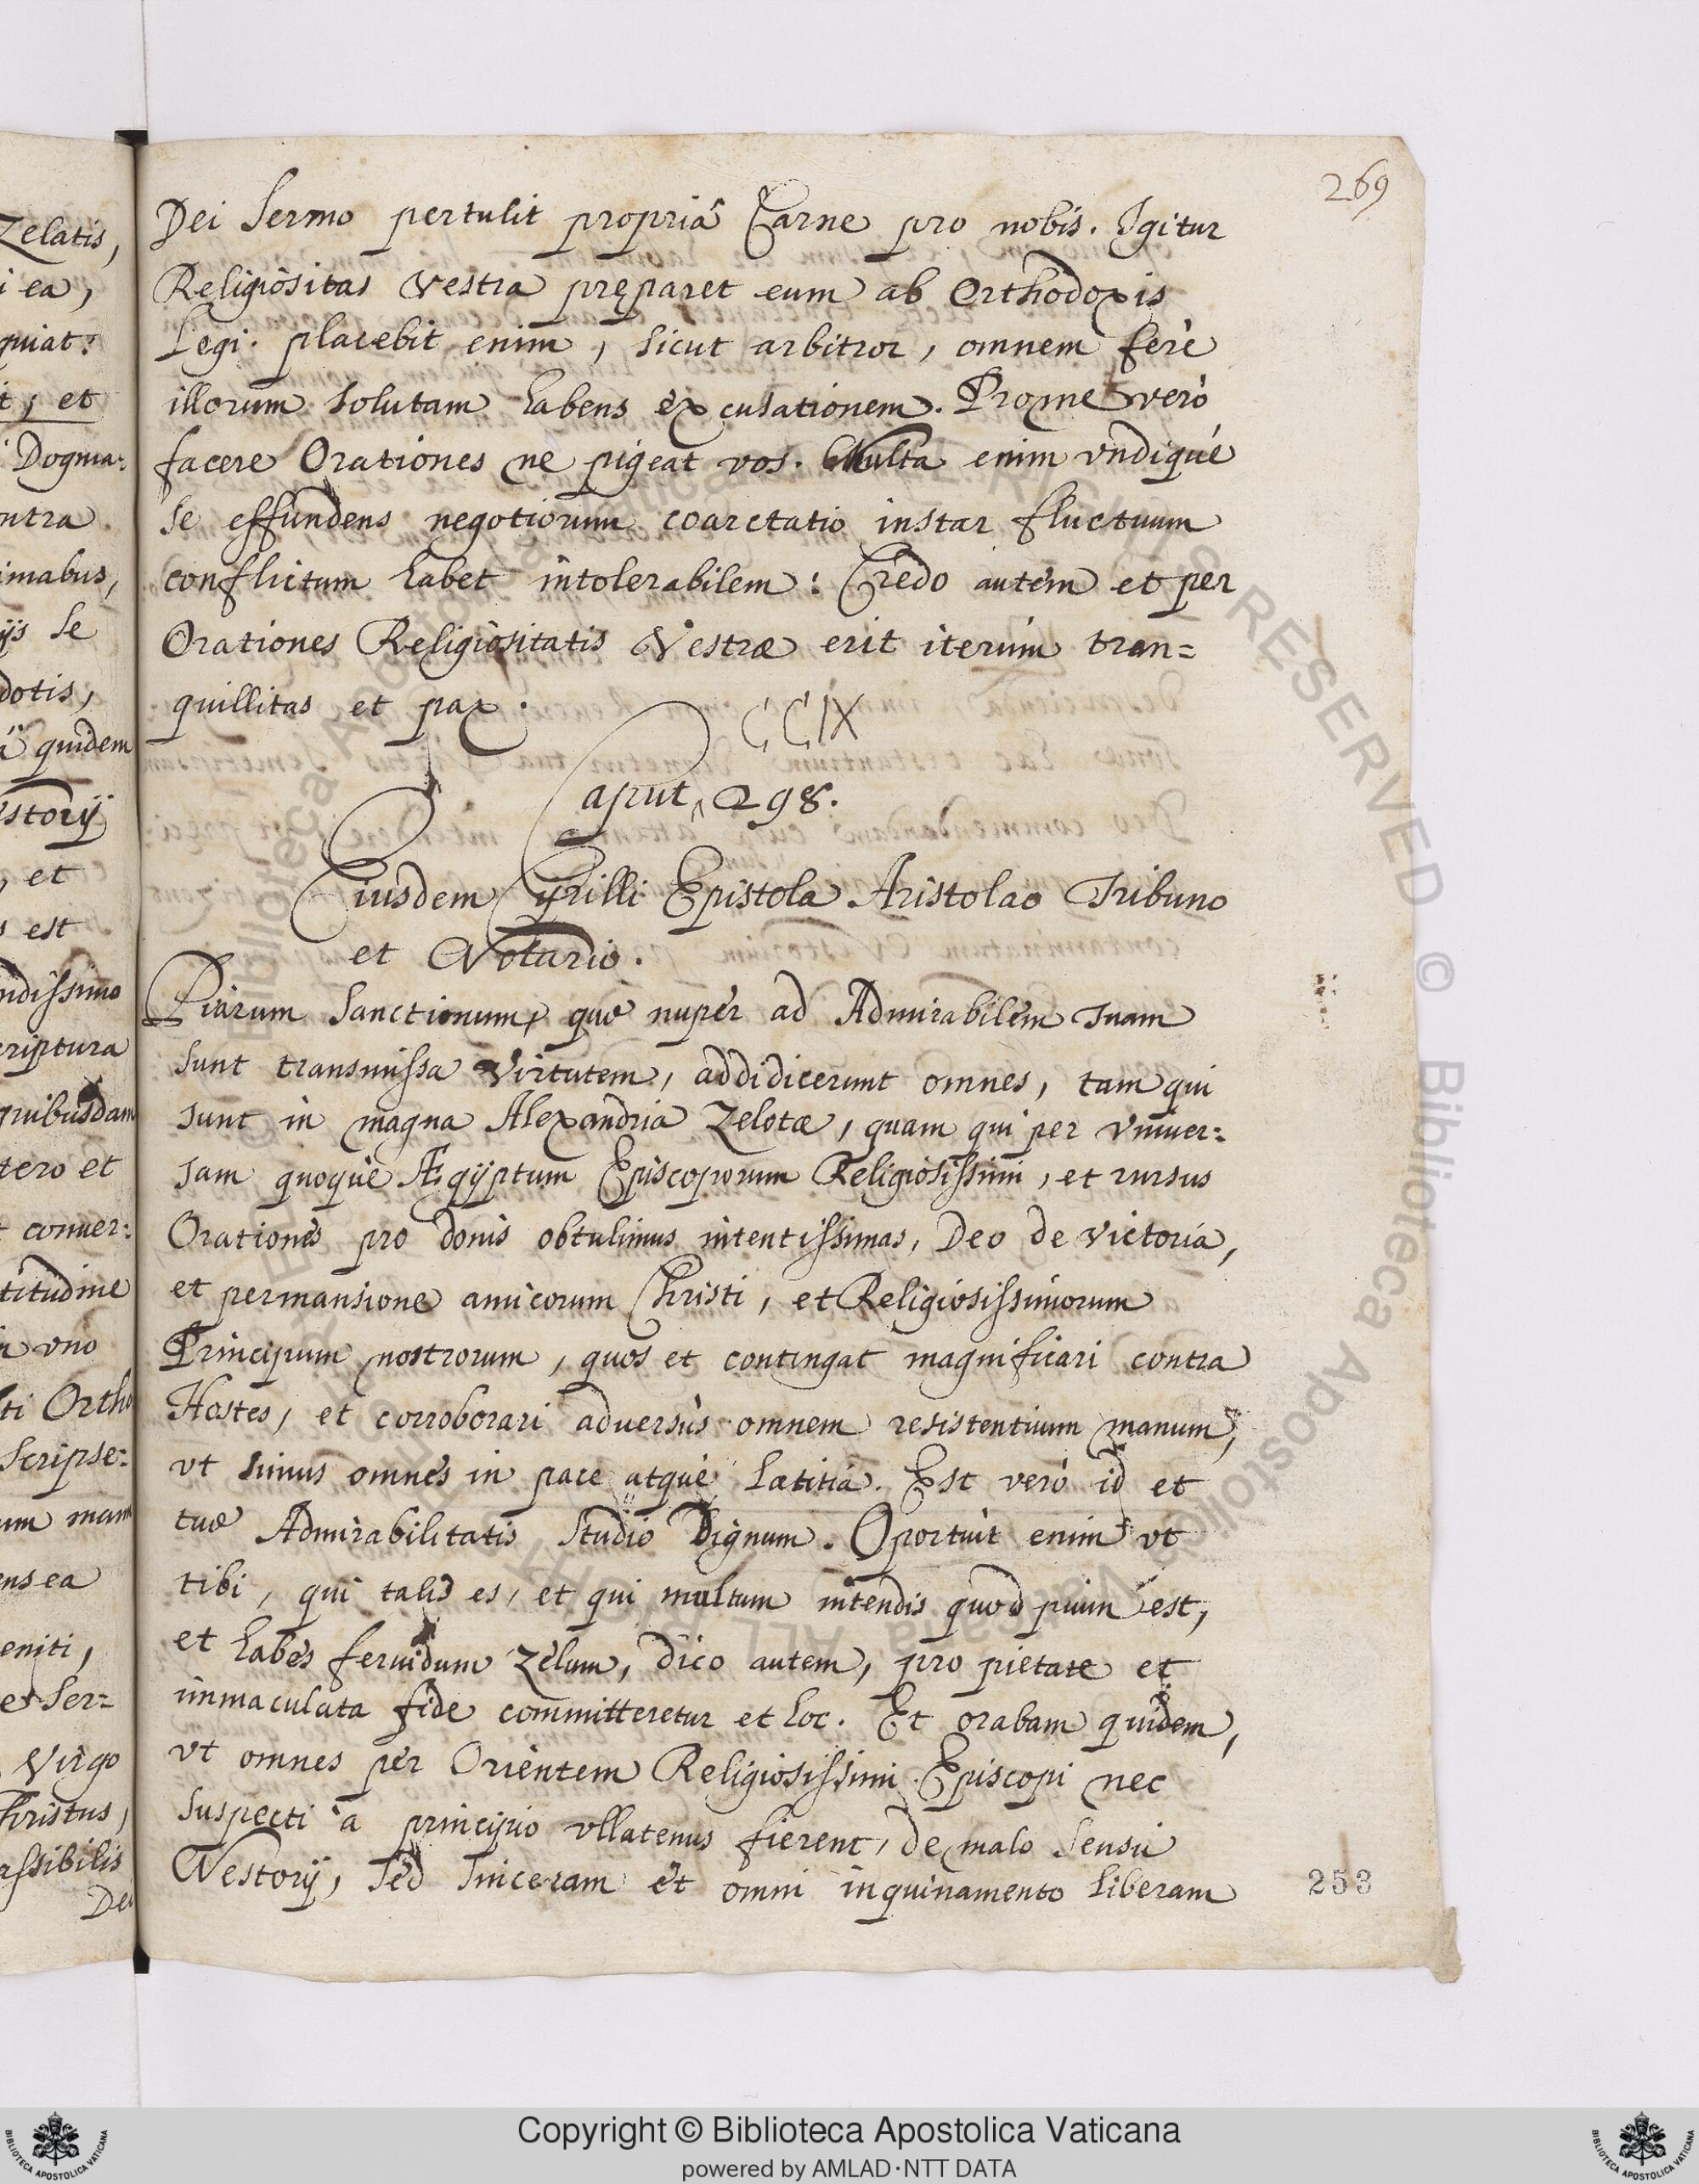 269
Dei Sermo pertulit propriâ Carne pro nobis. Igitur
Religiositas Vestra pręparet eum ab Orthodoxis
Legi. placebit enim, sicut arbitror, omnem ferè
illorum solutam habens excusationem. Pro me verò
facere Orationes ne pigeat vos. Multa enim vndiquè
se effundens negotiorum coarctatio instar fluctuum
conflictum habet intolerabilem: Credo autem et per
Orationes Religiositatis Vestræ erit iterùm tran=
quillitas et pax.
CCIX
Caput ‸ 298.
Eiusdem Cyrilli Epistola Aristolao Tribuno
et Notario.
Piarum Sanctionum, quæ nuper ad Admirabilem Tuam
sunt transmissa Virtutem, addidicerunt omnes, tam qui
sunt in magna Alexandria Zelotæ, quam qui per vniuer=
sam quoque Ægyptum Episcoporum Religiosissimi, et rursus
Orationes pro donis obtulimus intentissimas, Deo de victoria,
et permansione amicorum Christi, et Religiosissimorum
Principum nostrorum, quos et contingat magnificari contra
Hostes, et corroborari aduersùs omnem resistentium manum,
vt simus omnes in pace atque Lætitiâ. Est verò id et
tuæ Admirabilitatis Studio Dignum. Oportuit enim vt
tibi, qui talis es, et qui multum intendis quod pium est,
et habes feruidum zelum, dico autem, pro pietate et
immaculata fide committeretur et hoc. Et orabam quidem,
vt omnes per Orientem Religiosissimi Episcopi nec
suspecti à principio vllatenus fierent, de malo sensu
Nestorij, sed sinceram et omni inquinamento liberam
253
Zelatis,
i ea,
quiat:
t, et
Dogma=
ntra
imabus,
ijs se
dotis,
quidem
storij
, et
s est
ndissimo
criptura
quibusdam
tero et
t conuer=
titudine
n vno
ti Ortho
Scripse=
um man
ens ea
eniti,
et Ser=
Virgo
hristus,
assibilis
Dei
Copyright © Biblioteca Apostolica Vaticana
powered by AMLAD·NTT DATA